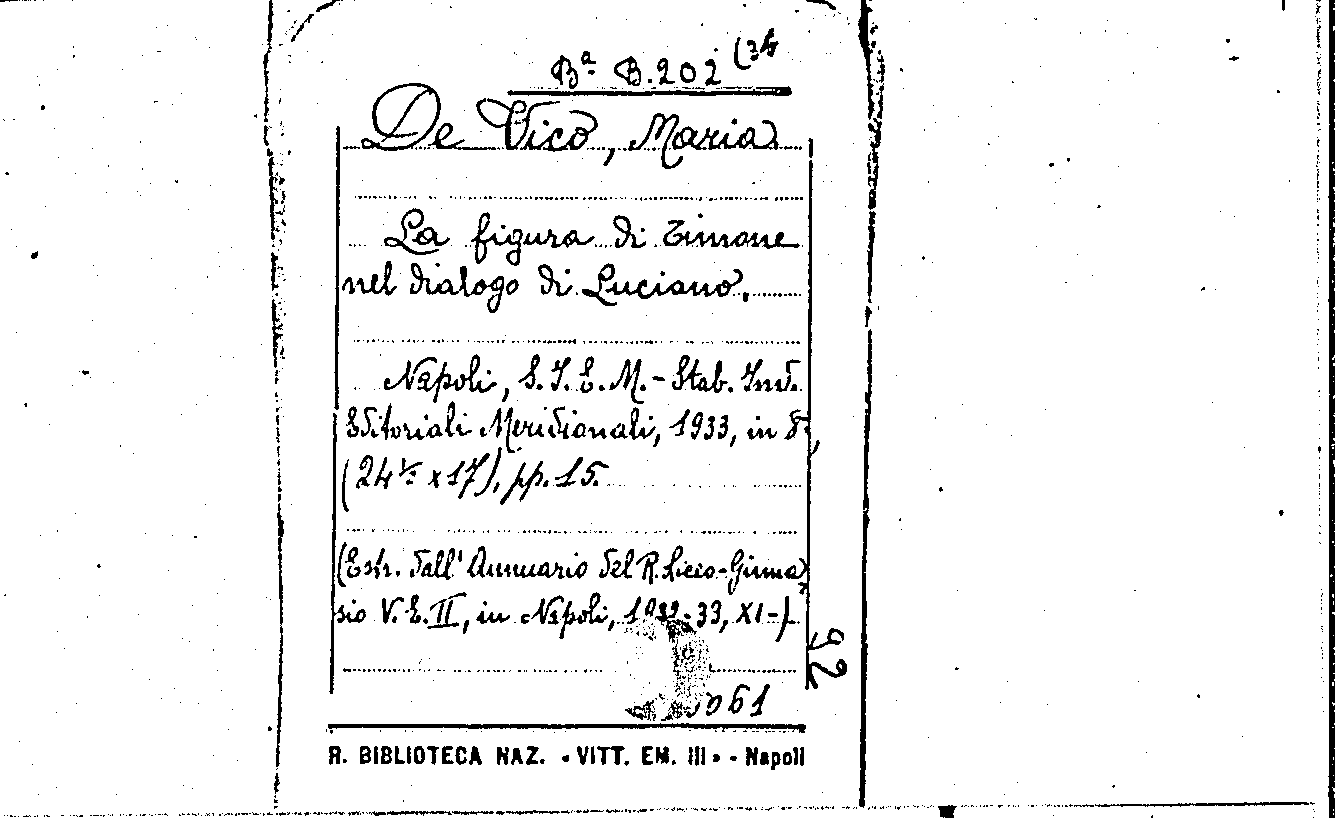 Bª B.202 (34
De Vico, Maria
La figura di Timone
nel dialogo di Luciano.
Napoli, S.I.E.M. - Stab. Ind.
Editoriali Meridionali, 1933, in 8º,
(24 ½ x 17), pp. 15.
(Estr. dall' Annuario del R. Liceo-Ginna
sio V. E. II, in Napoli, 1932-33, XI-).
92
061
R. BIBLIOTECA NAZ. « VITT. EM. III » - Napoli